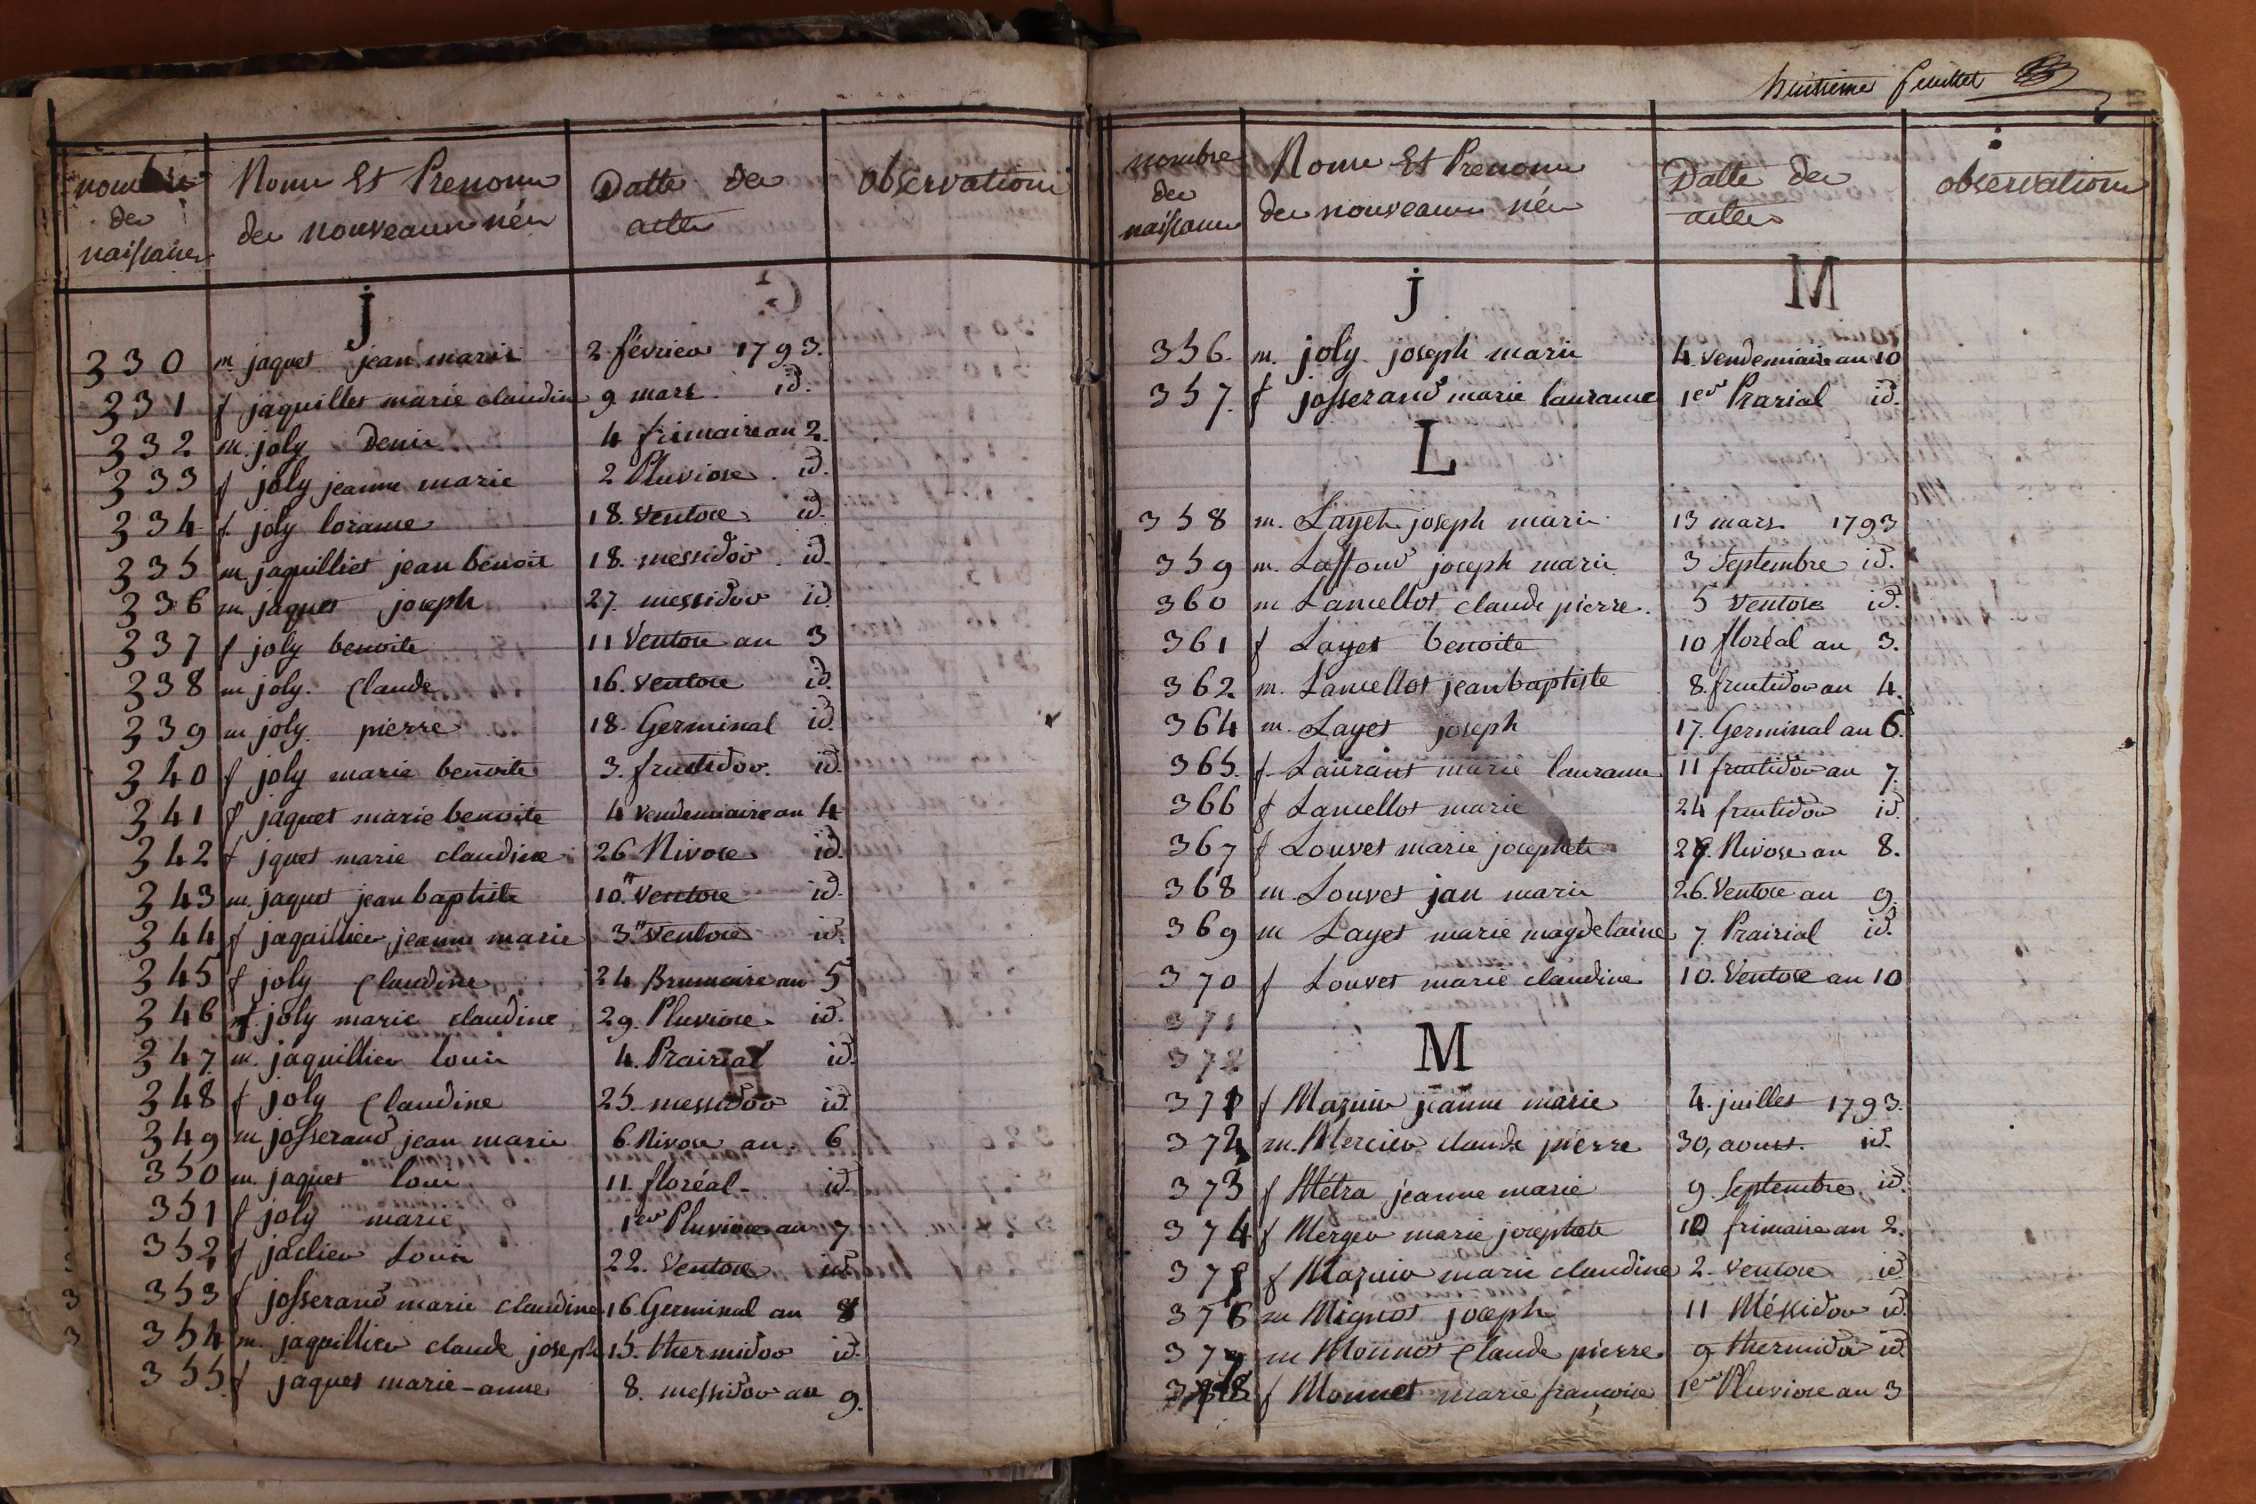 nombre de naissance
Noms Et Prenoms des nouveaux nés
Datte des actes
observations
j
330 m jaquet jean marie 2 février 1793.
331 f jaquillet marie claudine 9 mars id.
332 m. joly Denis 4 frimaire an 2.
333 f joly jeanne marie 2 Pluviose id.
334 f. joly loranse 18. ventose id.
335 m jaquilliet jean benoit 18. messidor id.
336 m jaquet joseph 27 messidor id.
337 f joly benoite 11 Ventose an 3
338 m joly. Claude 16. ventose id.
339 m joly. pierre 18. Germinal id.
340 f joly marie benoite 3. fructidor. id.
341 f jaquet marie benoite 4 vendemiaire an 4
342 f jquet marie claudine 26 Nivose id.
343 m. jaquet jean baptiste 10. Ventose id.
344 f jaquillier jeanne marie 3. Ventose id.
345 f joly Claudine 24 Brumaire an 5
346 f. joly marie claudine 29. Pluviose id.
347 m. jaquillier louis 4. Prairial id.
348 f joly Claudine 25. messidor id.
349 m josserand jean marie 6. Nivose an 6
350 m. jaquet louis 11. floréal id.
351 f joly marie 1er Pluviose an 7
352 f jaclier Louis 22. Ventose id.
353 f josserand marie claudine 16. Germinal an 8
354 m. jaquillier claude joseph 15. thermidor id.
355. f jaquet marie-anne 8. messidor an 9.
huitieme feuillet
nombre des naissance
Noms Et Prenoms des nouveaux nés
Datte des actes
observations
j M
356. m. joly joseph marie 4 vendemiaire an 10
357. f josserand marie lauranse 1er Prarial id.
L
358 m. Layet joseph marie 13 mars 1793
359 m. Laffond joseph marie 3 Septembre id.
360 m Lancellot claude pierre. 5 ventose id.
361 f Layet benoite 10 floréal an 3.
362 m. Lancellot jean baptiste 8. fructidor an 4.
364 m. Layet joseph 17. Germinal an 6.
365. f. Laurant marie lauranse 11 fructidor an 7.
366 f Lancellot marie 24 fructidor id.
367 f Louvet marie josephete 29. Nivose an 8.
368 m Louvet jan marie 26. Ventose an 9.
369 m Layet marie magdelaine 7. Prairial id.
370 f Louvet marie claudine 10. Ventose an 10
371
372 M
371 f Mazuir jeanne marie 4. juillet 1793.
372 m. Mercier claude pierre 30, aoust. id.
373 f Métra jeanne marie 9 Septembre id.
374 f Merger marie josephete 10 frimaire an 2.
375 f Mazuir marie claudine 2 ventose id.
376 m Mignot joseph 11 Méssidor id.
377 m Moninot Claude pierre 9 thermidor id.
378 f Monnet marie françoise 1er Pluviose an 3